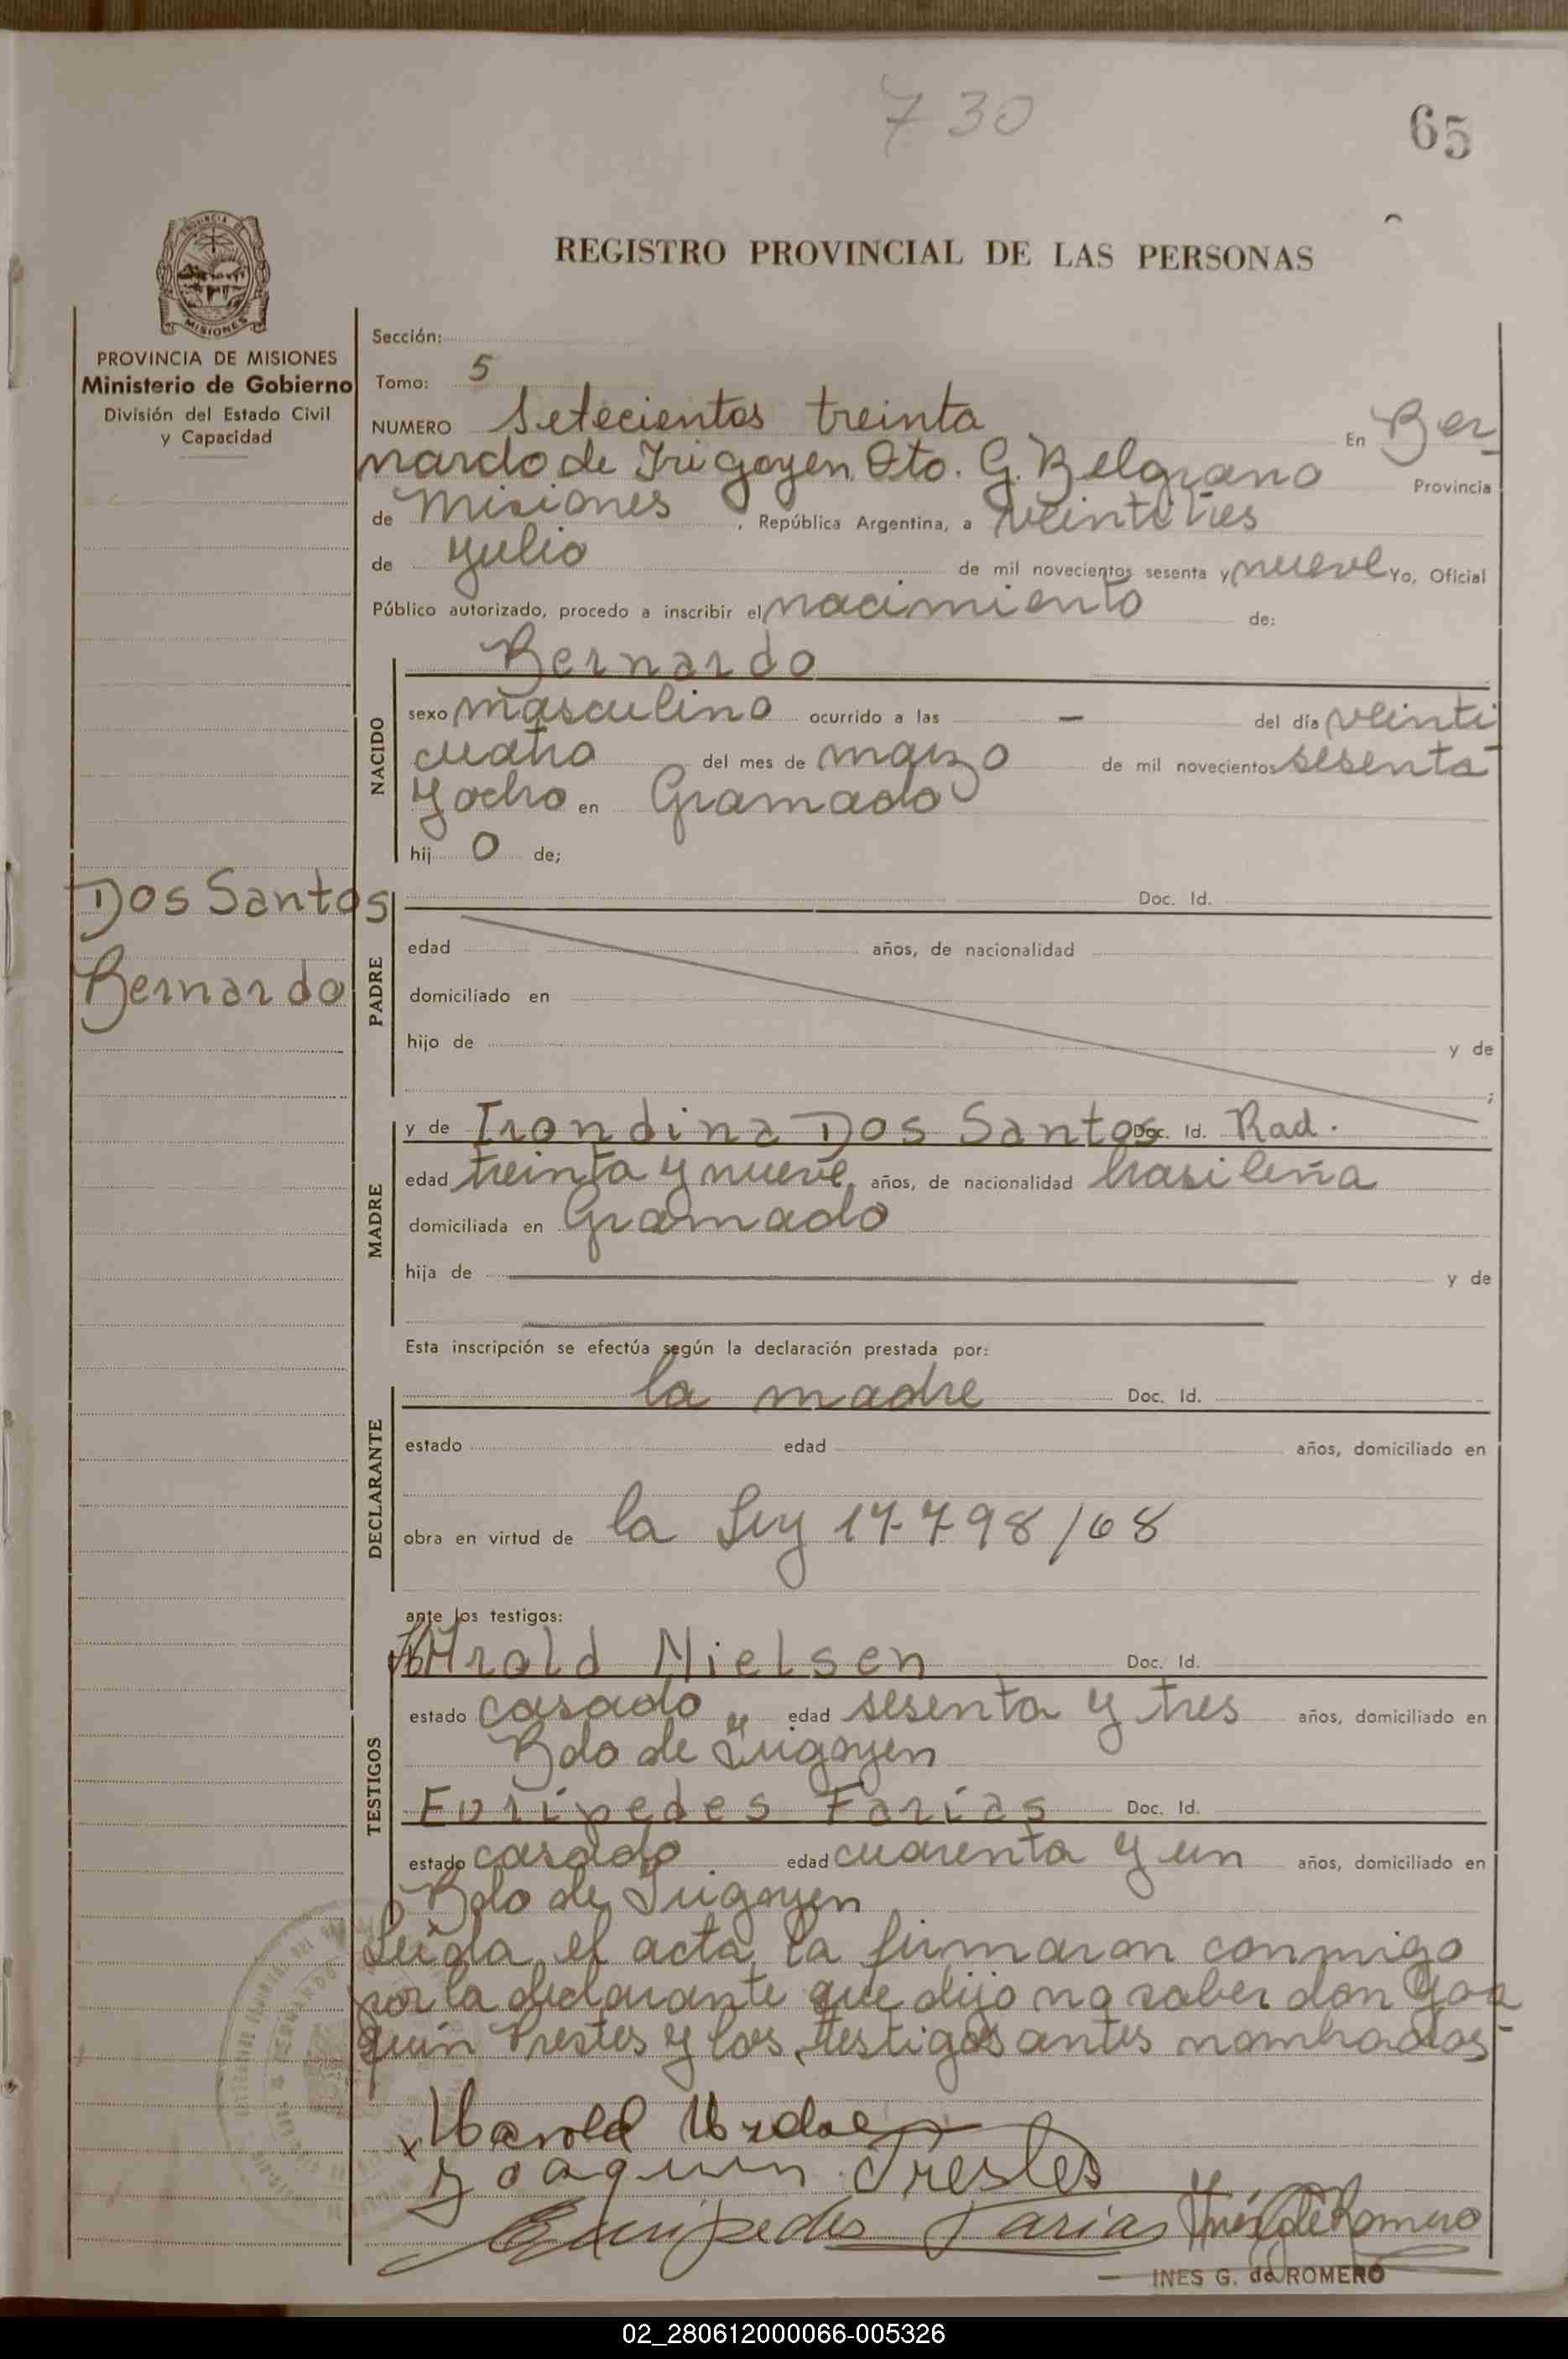 730
65
REGISTRO PROVINCIAL DE LAS PERSONAS
PROVINCIA DE MISIONES
Ministerio de Gobierno
División del Estado Civil
y Capacidad
Sección:
Tomo: 5
NUMERO Setecientos treinta En Ber
nardo de Irigoyen, Dto. G. Belgrano Provincia
de Misiones, República Argentina, a veintitres
de julio de mil novecientos sesenta y nueve Yo, Oficial
Público autorizado, procedo a inscribir el nacimiento de:
NACIDO
Bernardo
sexo masculino ocurrido a las — del día veinti
cuatro del mes de marzo de mil novecientos sesenta
y ocho en Gramado
hij o de;
Dos Santos
Bernardo
PADRE
Doc. Id.
edad años, de nacionalidad
domiciliado en
hijo de y de
;
MADRE
y de Irondina Dos Santos Doc. Id. Rad.
edad treinta y nueve años, de nacionalidad brasileña
domiciliada en Gramado
hija de y de
Esta inscripción se efectúa según la declaración prestada por:
DECLARANTE
la madre Doc. Id.
estado edad años, domiciliado en
obra en virtud de la Ley 17798/68
ante los testigos:
TESTIGOS
Harold Nielsen Doc. Id.
estado casado edad sesenta y tres años, domiciliado en
Bdo de Irigoyen
Eurípedes Farías Doc. Id.
estado casado edad cuarenta y un años, domiciliado en
Bdo de Irigoyen
Leída el acta, la firmaron conmigo
por la declarante que dijo no saber don Joa
quin Prestes y los testigos antes nombrados-
Harold
Joaquin Prestes
Euripedes Farias Inés G de Romero
INES G. de ROMERO
02_280612000066-005326